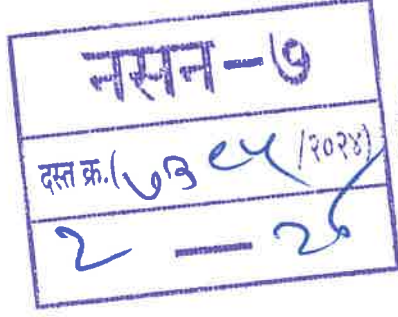 नसन-७
दस्त क्र.(७३९५/२०२४)
२ — २६